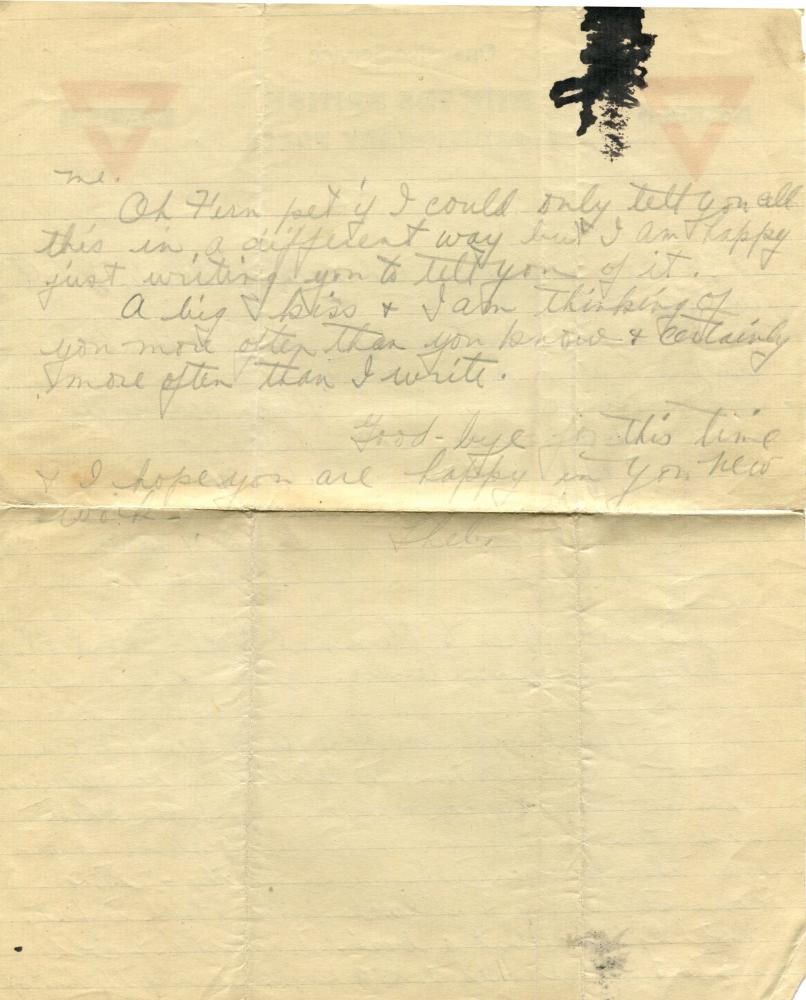 me.
Oh Fern pet if I could only tell you all
this in a different way but I am happy
just writing you to tell you of it.
A big kiss & I am thinking of
you more often than you know & certainly
more often than I write.
Good-bye for this time
& I hope you are happy in you new
work-